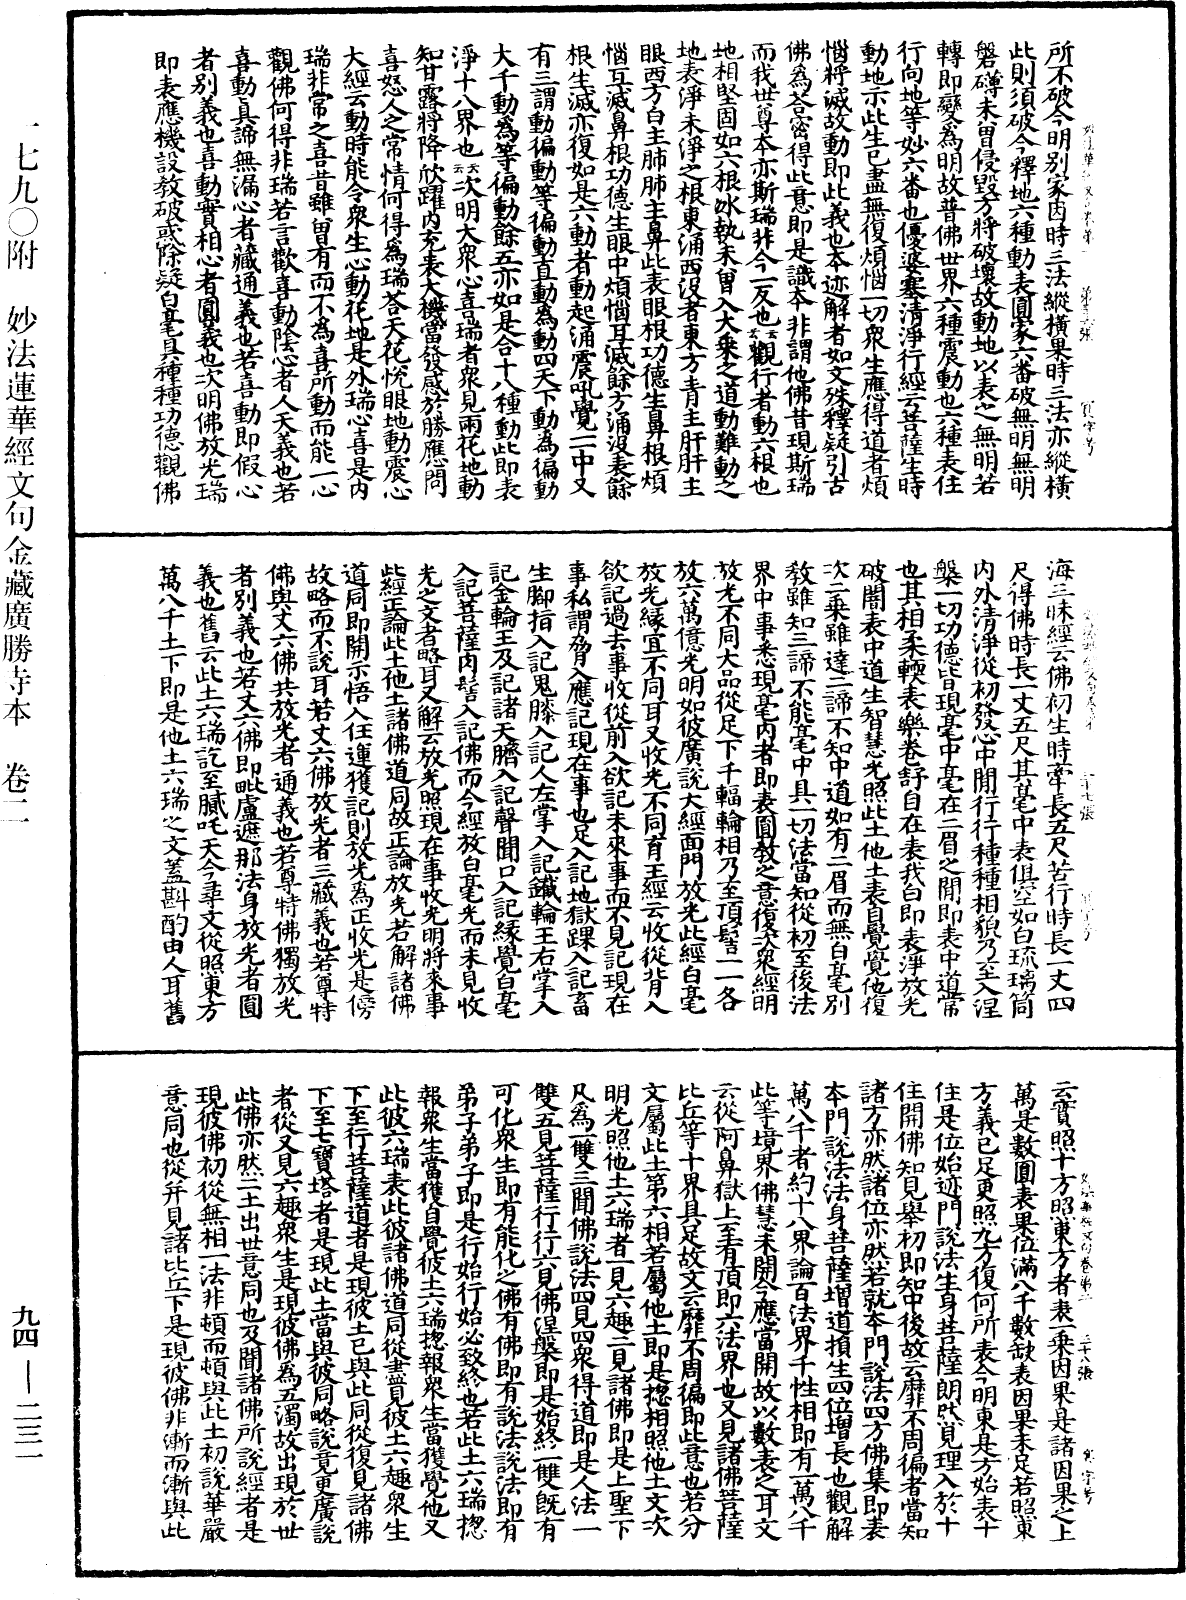 所不破今明別家因時三法縱橫果時三法亦縱橫
此則須破今釋地六種動表圓家六番破無明無明
磐礴未曾侵毀方將破壞故動地以表之無明若
轉即變為明故普佛世界六種震動也六種表住
行向地等妙六番也優婆塞清淨行經云菩薩生時
動地示此生已盡無復煩惱一切衆生應得道者煩
惱將滅故動即此義也本迹解者如文殊釋疑引古
佛為荅密得此意即是識本非謂他佛昔現斯瑞
而我世尊本亦斯瑞非今一反也云云觀行者動六根也
地相堅固如六根氷執未曾入大乘之道動難動之
地表淨未淨之根東涌西沒者東方青主肝肝主
眼西方白主肺肺主鼻此表眼根功德生鼻根煩
惱互滅鼻根功德生眼中煩惱互滅餘方涌沒表餘
根生滅亦復如是六動者動起涌震吼覺一一中又
有三謂動徧動等徧動直動為動四天下動為徧動
大千動為等徧動餘五亦如是合十八種動此即表
淨十八界也云云次明大衆心喜瑞者衆見雨花地動
知甘露將降欣躍内充表大機當發感於勝應問
喜怒人之常情何得為瑞荅天花悅眼地動震心
大經云動時能令衆生心動花地是外瑞心喜是内
瑞非常之喜昔雖曾有而不為喜所動而能一心
觀佛何得非瑞若言歡喜動陰心者人天義也若
喜動真諦無漏心者藏通義也若喜動即假心
者別義也喜動實相心者圓義也次明佛放光瑞
即表應機設教破惑除疑白毫具種種功德觀佛
海三昧經云佛初生時牽長五尺苦行時長一丈四
尺得佛時長一丈五尺其毫中表俱空如白琉璃筒
内外清淨從初發心中間行行種種相貌乃至入涅
槃一切功德皆現毫中毫在二眉之間即表中道常
也其相柔軟表樂卷舒自在表我白即表淨放光
破闇表中道生智慧光照此土他土表自覺覺他復
次二乘雖達二諦不知中道如有二眉而無白毫別
教雖知三諦不能毫中具一切法當知從初至後法
界中事悉現毫内者即表圓教之意復次衆經明
放光不同大品從足下千輻輪相乃至頂髻一一各
放六萬億光明如彼廣說大經面門放光此經白毫
放光緣宜不同耳又收光不同育王經云收從背入
欲記過去事收從前入欲記未來事而不見記現在
事私謂脅入應記現在事也足入記地獄踝入記畜
生腳指入記鬼膝入記人左掌入記鐵輪王右掌入
記金輪王及記諸天臍入記聲聞口入記緣覺白毫
入記菩薩肉髻入記佛而今經放白毫光而未見收
光之文者略耳又解云放光照現在事收光明將來事
此經正論此土他土諸佛道同故正論放光若解諸佛
道同即開示悟入任運獲記則放光為正收光是傍
故略而不說耳若丈六佛放光者三藏義也若尊特
佛與丈六佛共放光者通義也若尊特佛獨放光
者別義也若丈六佛即毗盧遮那法身放光者圓
義也舊云此土六瑞訖至膩吒天今尋文從照東方
萬八千土下即是他土六瑞之文蓋斟酌由人耳舊
云實照十方照東方者表一乘因果是諸因果之上
萬是數圓表果位滿八千數缺表因果未足若照東
方義已足更照九方復何所表今明東是方始表十
住是位始迹門說法生身菩薩朗然見理入於十
住開佛知見舉初即知中後故云靡不周徧者當知
諸方亦然諸位亦然若就本門說法四方佛集即表
本門說法法身菩薩增道損生四位增長也觀解
萬八千者約十八界論百法界千性相即有一萬八千
此等境界佛慧未開今應當開故以數表之耳文
云從阿鼻獄上至有頂即六法界也又見諸佛菩薩
比丘等十界具足故文云靡不周徧即此意也若分
文屬此土第六相若屬他土即是揔相照他土文次
明光照他土六瑞者一見六趣二見諸佛即是上聖下
凡為一雙三聞佛說法四見四衆得道即是人法一
雙五見菩薩行行六見佛涅槃即是始終一雙既有
可化衆生即有能化之佛有佛即有說法說法即有
弟子弟子即是行始行始必致終也若此土六瑞揔
報衆生當獲自覺彼土六瑞揔報衆生當獲覺他又
此彼六瑞表此彼諸佛道同從盡見彼土六趣衆生
下至行菩薩道者是現彼土已與此同從復見諸佛
下至七寶塔者是現此土當與彼同略說竟更廣說
者從又見六趣衆生是現彼佛為五濁故出現於世
此佛亦然二土出世意同也及聞諸佛所說經者是
現彼佛初從無相一法非頓而頓與此土初說華嚴
意同也從并見諸比丘下是現彼佛非漸而漸與此
一七九〇附 妙法蓮華經文句金藏廣勝寺本 卷二
九四—二三一